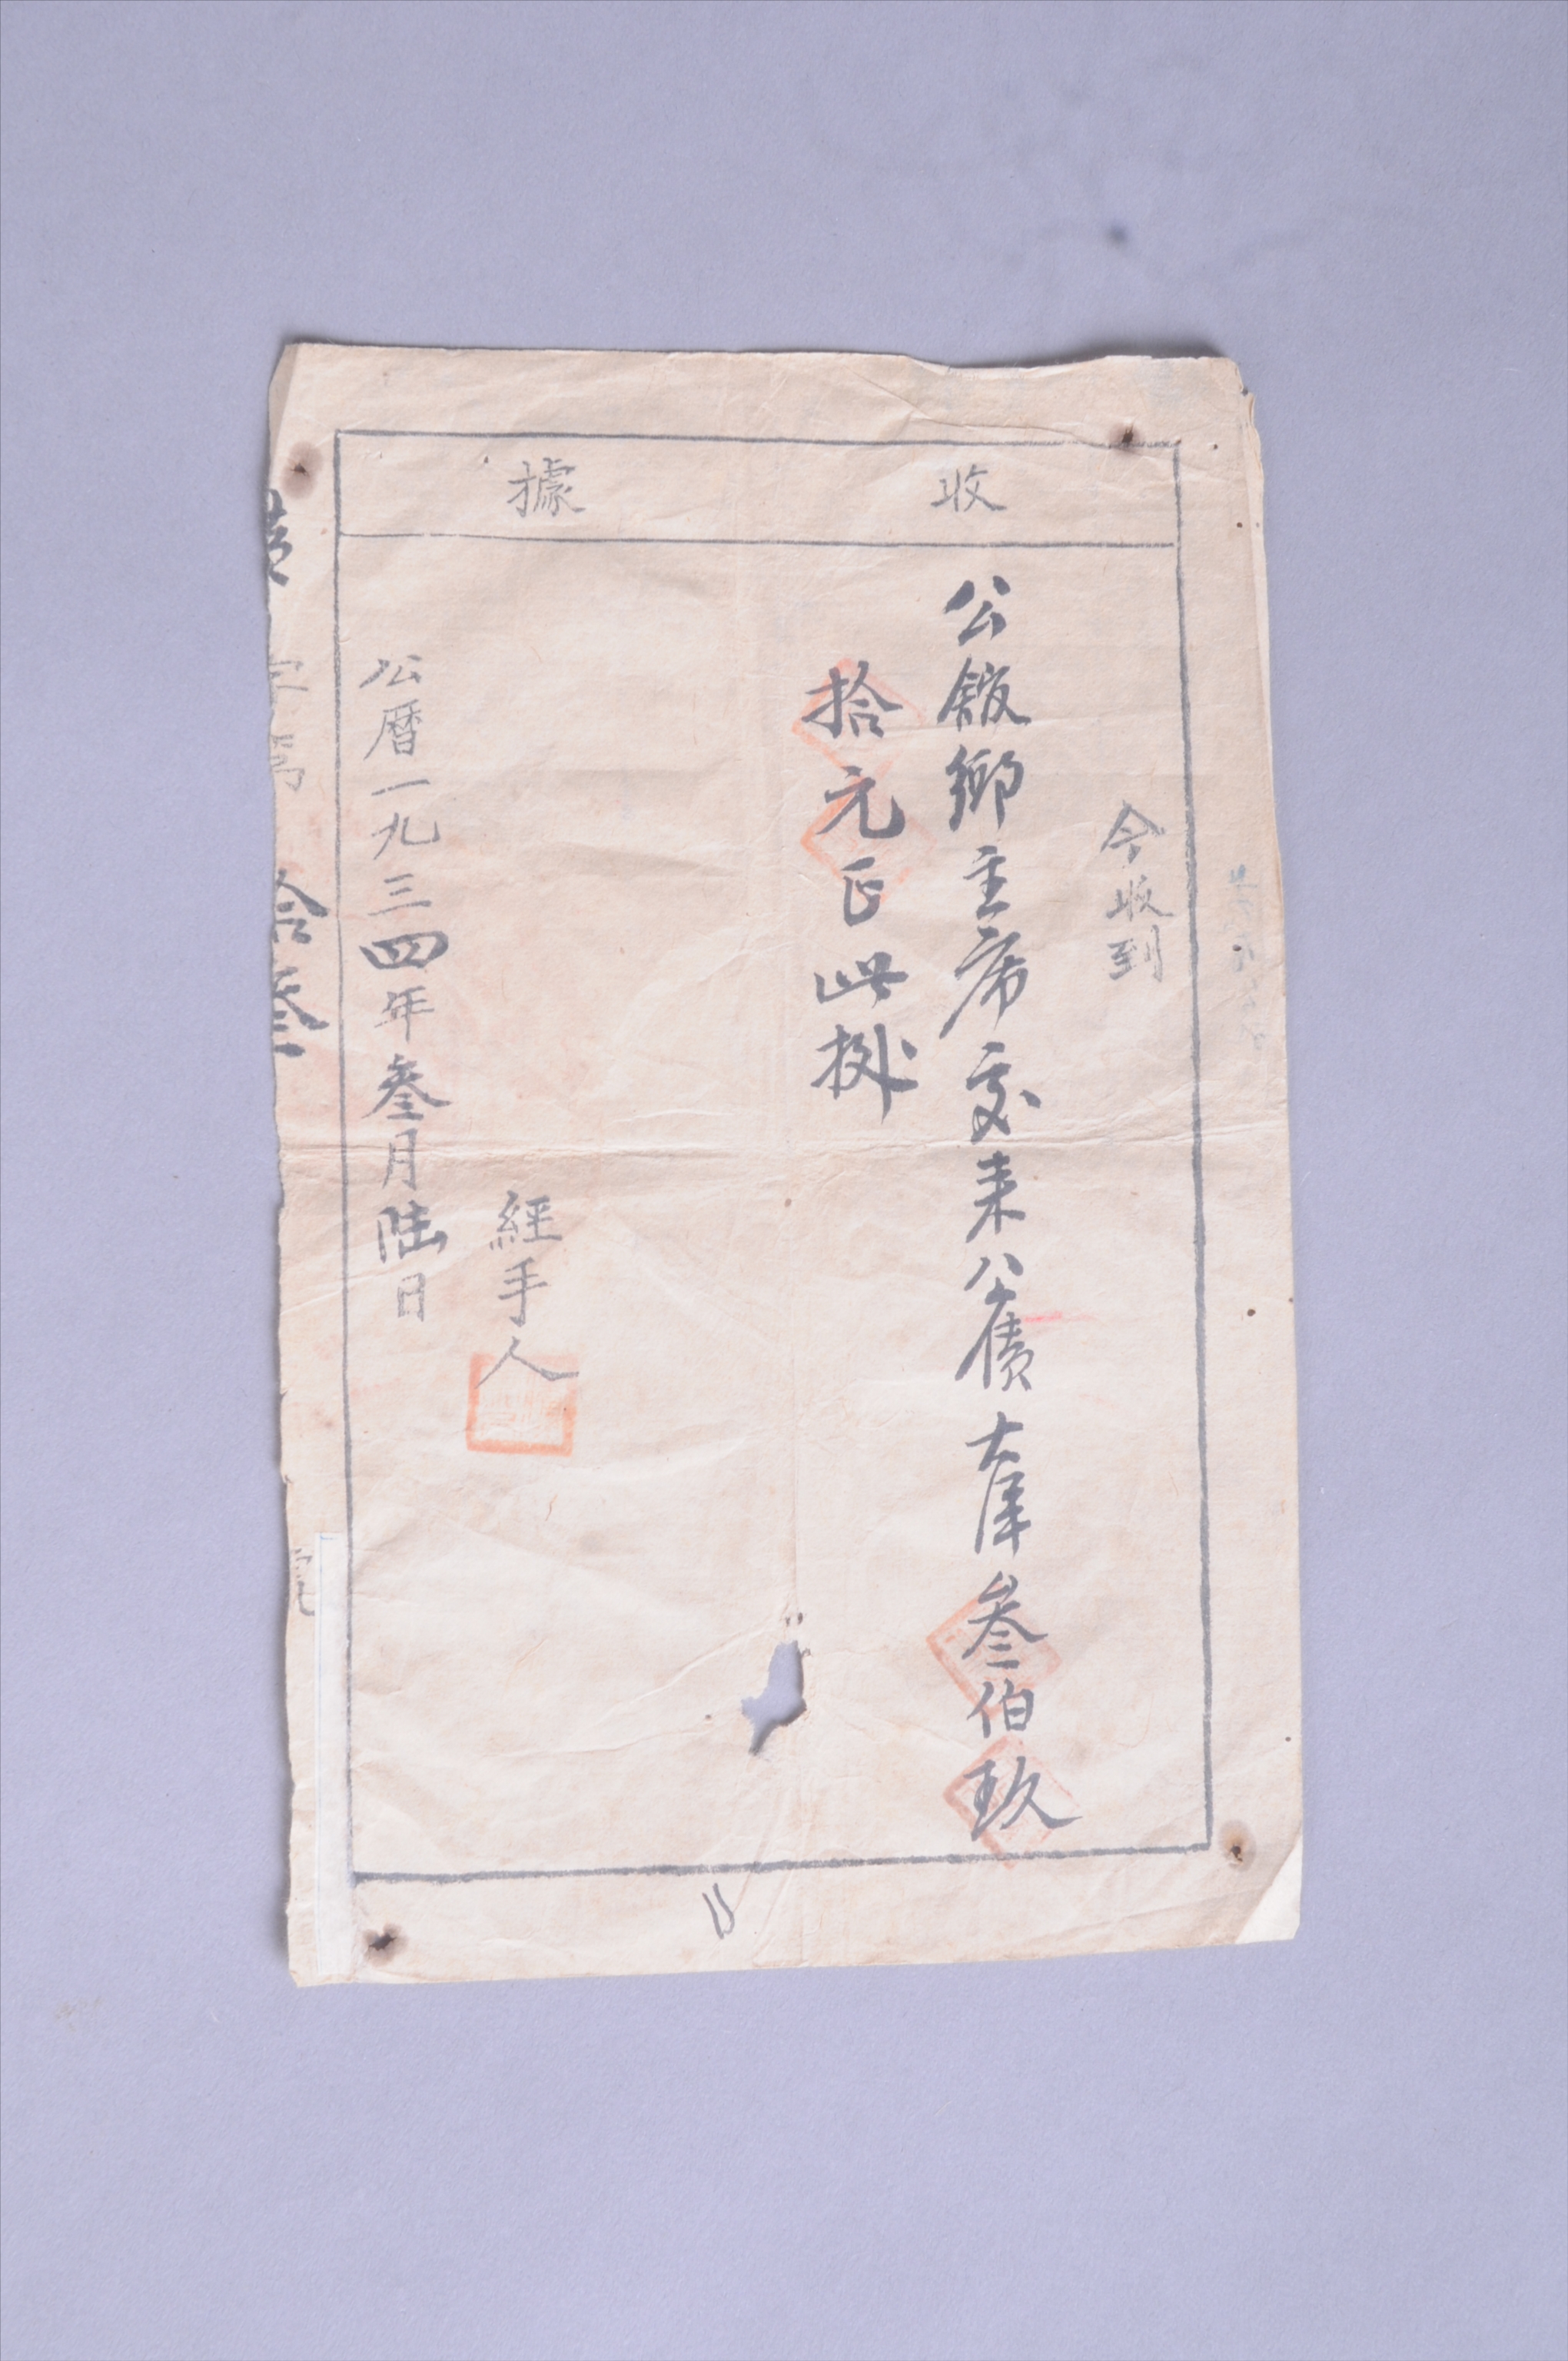 收據
今收到
公館鄉主席交来公債大洋叁伯玖
拾元正此據
經手人
公曆一九三四年叁月陆日
字第 拾叁 號